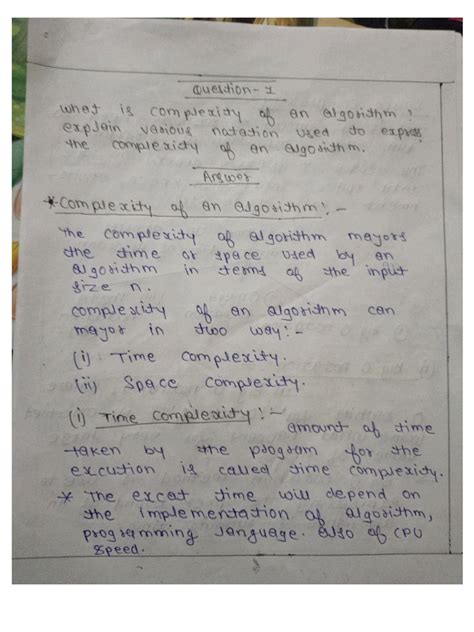 Question-1
what is complexity of an algorithm !
explain various natation used to express
the complexity of an algorithm.
Answer
*Complexity of an algorithm! -
the complexity of algorithm mayors
the time or space used by an
algorithm in terms of the input
size n.
complexity of an algorithm can
mayor in two way! -
(i) Time complexity.
(ii) Space complexity.
(i) Time complexity! -
amount of time
taken by the program for the
excution is called time complexity.
* The excat time will depend on
the implementation of algorithm,
programming language. also of CPU
speed.